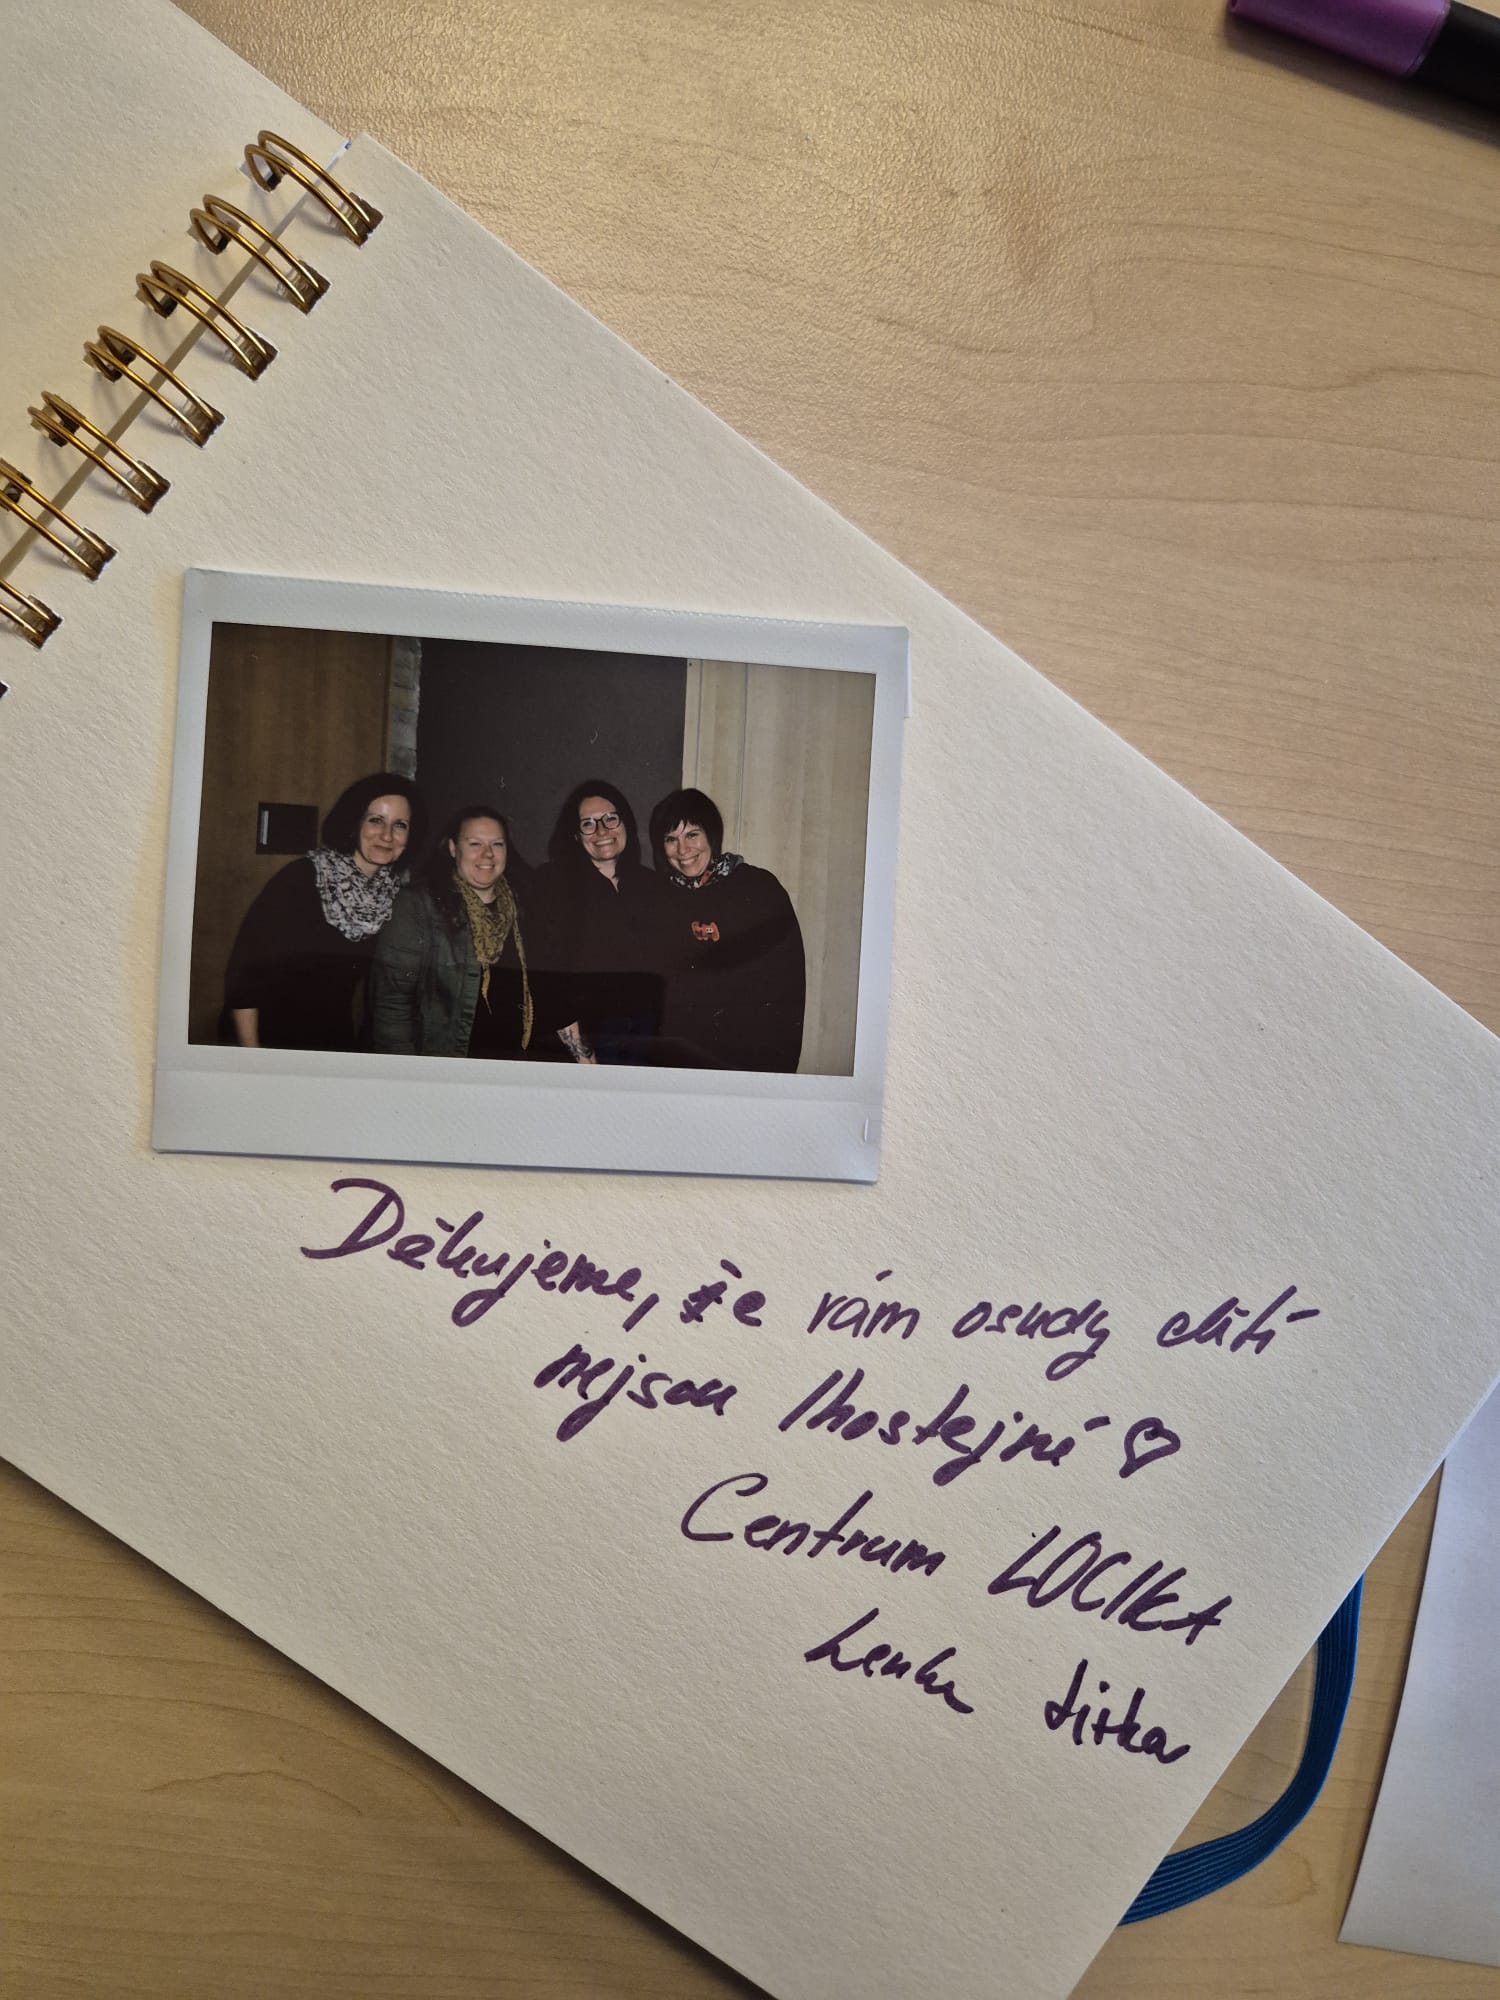 Děkujeme, že vám osudy dětí
nejsou lhostejné ♡
Centrum LOCIKA
Lenka Jitka